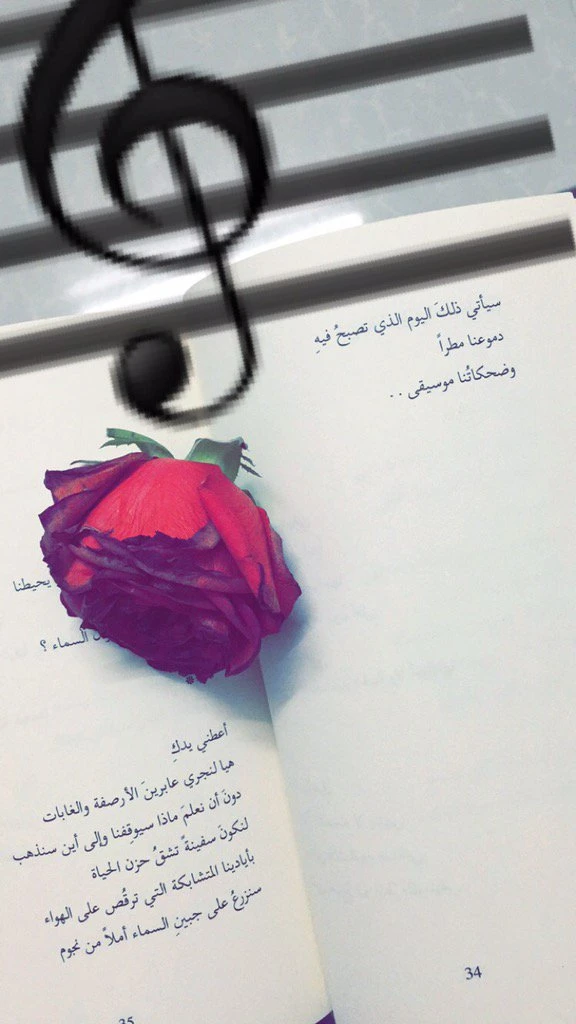 سيأتي ذلكَ اليوم الذي تصبحُ فيهِ
دموعنا مطراً
وضحكاتُنا موسيقى . .
34
يحيطنا
السماء ؟
*
أعطني يدكِ
هيا لنجري عابرينَ الأرصفة والغابات
دونَ أن نعلمَ ماذا سيوقِفنا وإلى أين سنذهب
لنكونَ سفينةً تشقُ حزن الحياة
بأيادينا المتشابكة التي ترقُص على الهواء
سنزرعُ على جبينِ السماء أملاً من نجوم
35